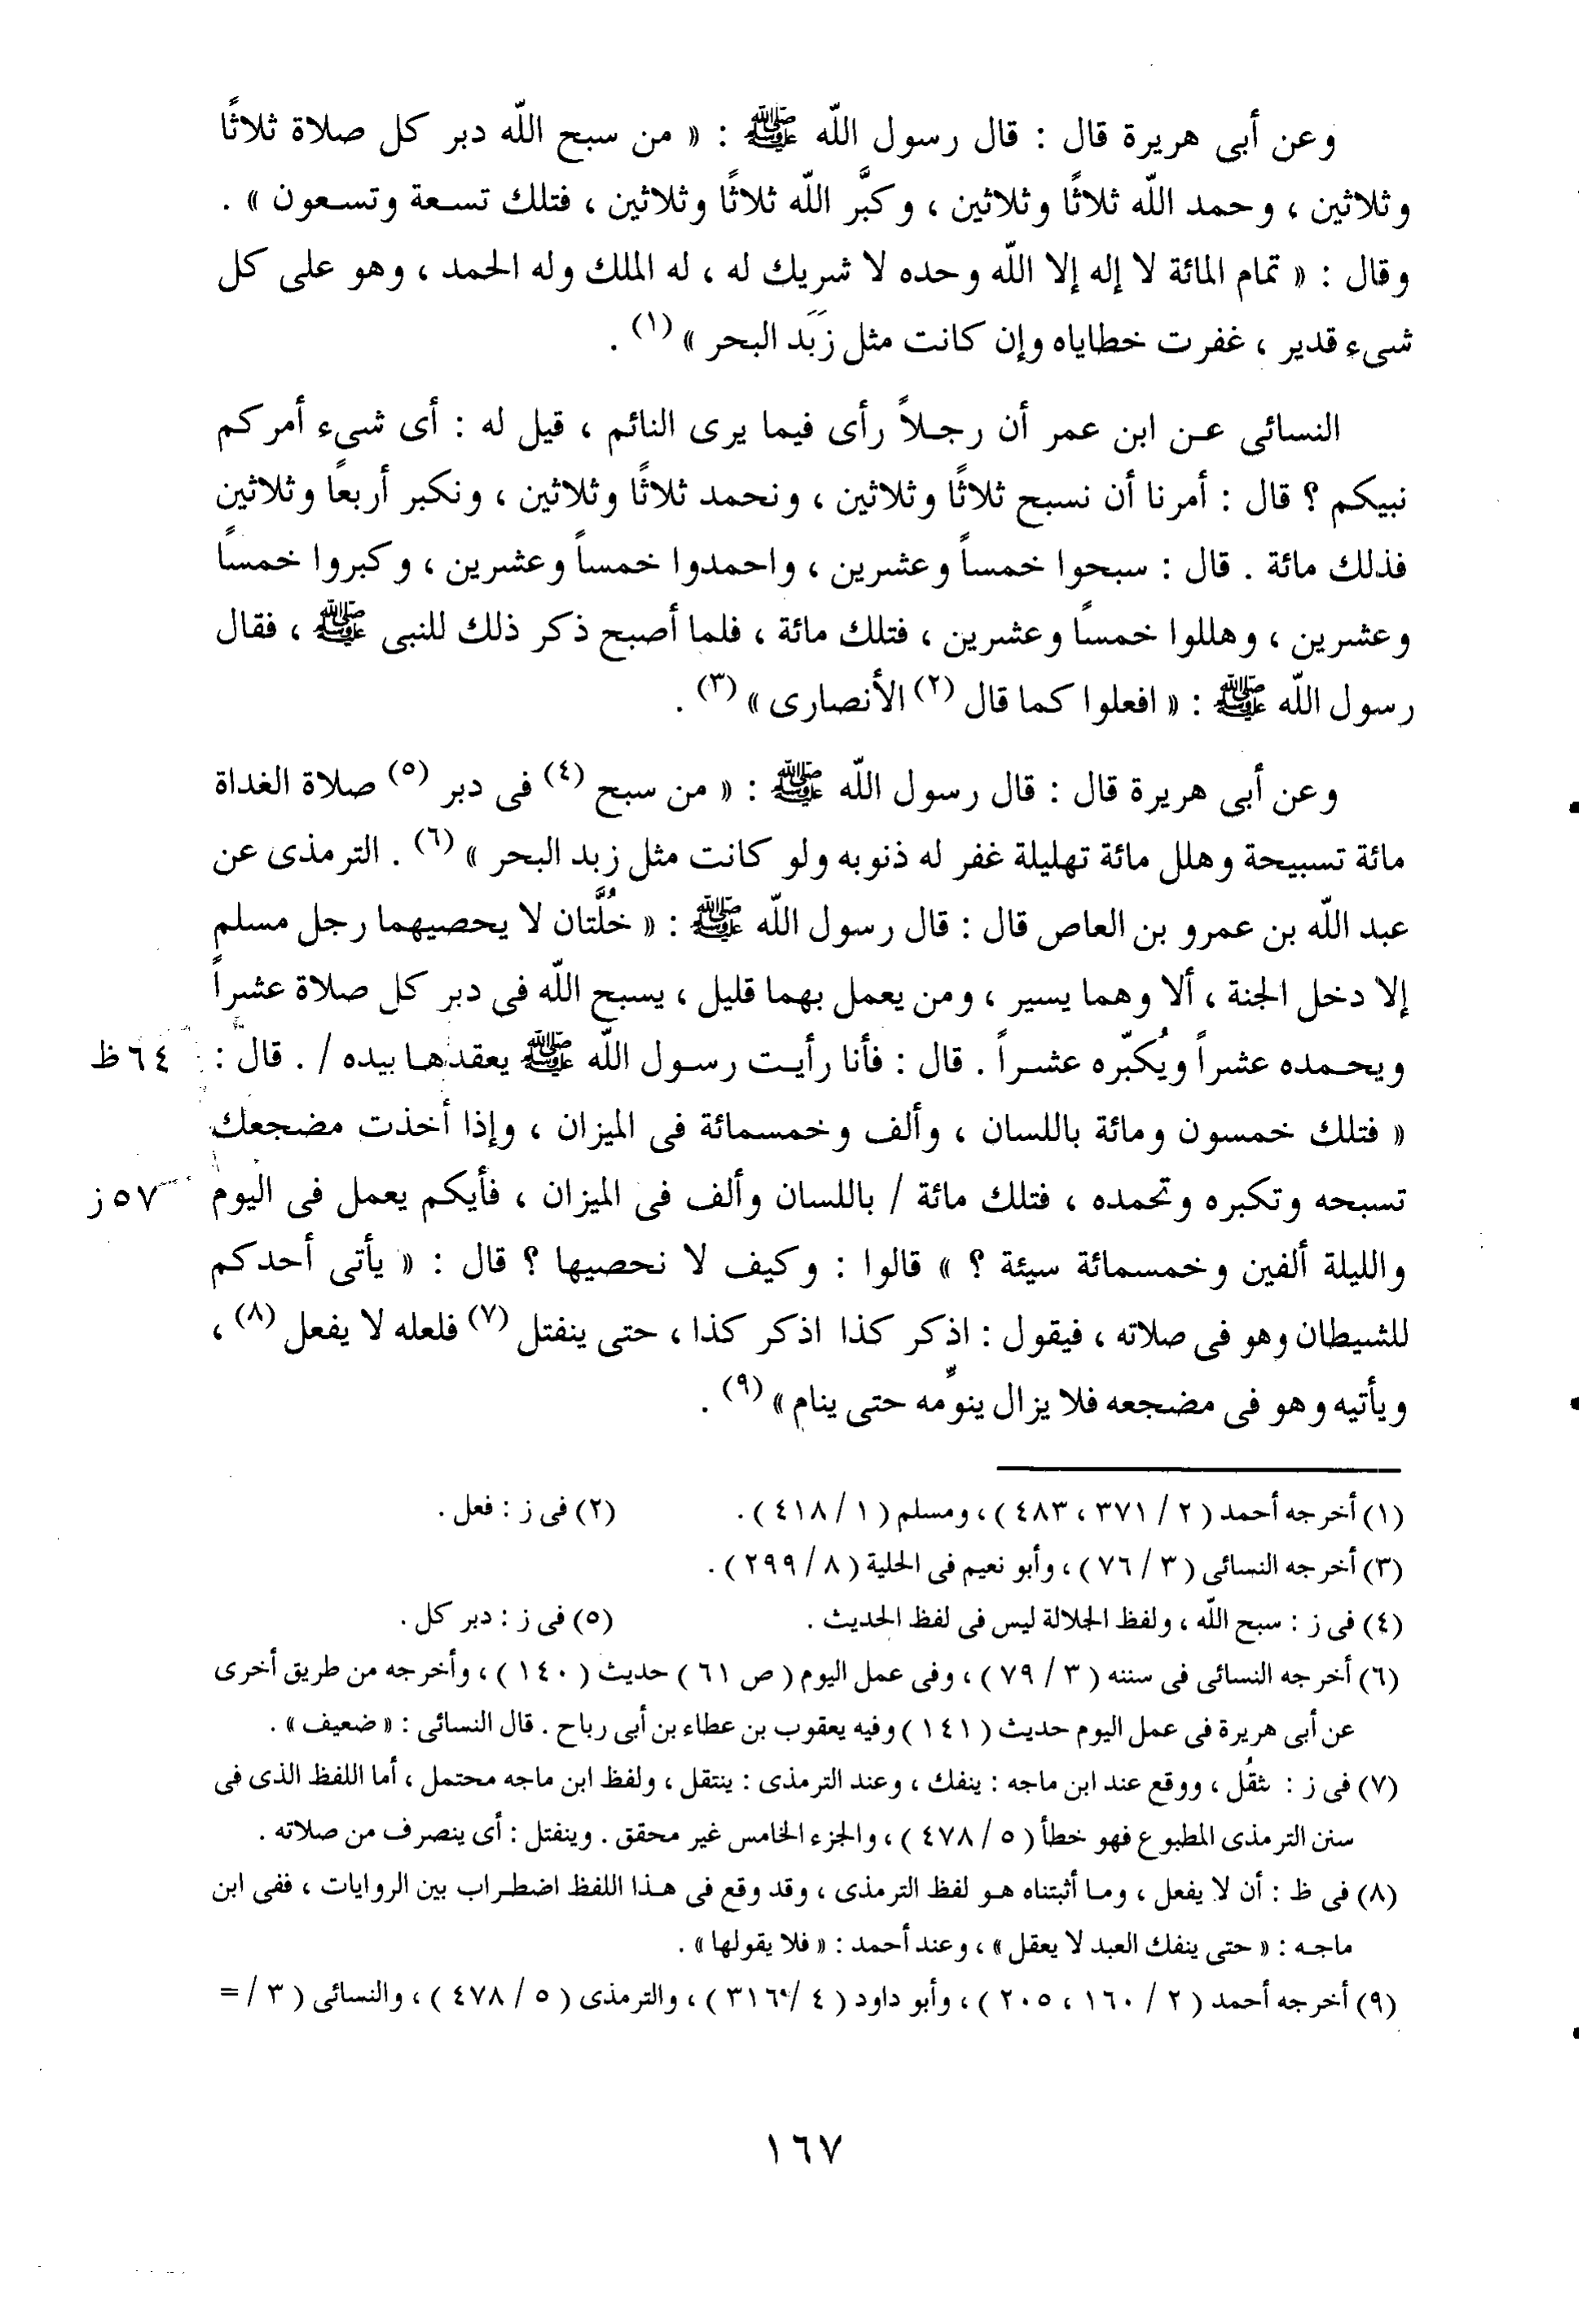 وعن أبى هريرة قال : قال رسول اللّه ﷺ : « من سبح اللّه دبر كل صلاة ثلاثًا
وثلاثين ، وحمد اللّه ثلاثًا وثلاثين ، وكبَّر اللّه ثلاثًا وثلاثين ، فتلك تسعة وتسعون » .
وقال : « تمام المائة لا إله إلا اللّه وحده لا شريك له ، له الملك وله الحمد ، وهو على كل
شىء قدير ، غفرت خطاياه وإن كانت مثل زَبَد البحر » (١) .
النسائى عن ابن عمر أن رجلاً رأى فيما يرى النائم ، قيل له : أى شىء أمركم
نبيكم ؟ قال : أمرنا أن نسبح ثلاثًا وثلاثين ، ونحمد ثلاثًا وثلاثين ، ونكبر أربعًا وثلاثين
فذلك مائة . قال : سبحوا خمساً وعشرين ، واحمدوا خمساً وعشرين ، وكبروا خمسًا
وعشرين ، وهللوا خمسًا وعشرين ، فتلك مائة ، فلما أصبح ذكر ذلك للنبى ﷺ ، فقال
رسول اللّه ﷺ : « افعلوا كما قال (٢) الأنصارى » (٣) .
وعن أبى هريرة قال : قال رسول اللّه ﷺ : « من سبح (٤) فى دبر (٥) صلاة الغداة
مائة تسبيحة وهلل مائة تهليلة غفر له ذنوبه ولو كانت مثل زبد البحر » (٦) . الترمذى عن
عبد اللّه بن عمرو بن العاص قال : قال رسول اللّه ﷺ : « خُلَّتان لا يحصيهما رجل مسلم
إلا دخل الجنة ، ألا وهما يسير ، ومن يعمل بهما قليل ، يسبح اللّه فى دبر كل صلاة عشراً
ويحمده عشراً ويُكبّره عشراً . قال : فأنا رأيت رسول اللّه ﷺ يعقدها بيده / . قال : ٦٤ ظ
« فتلك خمسون ومائة باللسان ، وألف وخمسمائة فى الميزان ، وإذا أخذت مضجعك
تسبحه وتكبره وتحمده ، فتلك مائة / باللسان وألف فى الميزان ، فأيكم يعمل فى اليوم ٥٧ ز
والليلة ألفين وخمسمائة سيئة ؟ » قالوا : وكيف لا نحصيها ؟ قال : « يأتى أحدكم
للشيطان وهو فى صلاته ، فيقول : اذكر كذا اذكر كذا ، حتى ينفتل (٧) فلعله لا يفعل (٨) ،
ويأتيه وهو فى مضجعه فلا يزال ينوِّمه حتى ينام » (٩) .
(١) أخرجه أحمد ( ٢ / ٣٧١ ، ٤٨٣ ) ، ومسلم ( ١ / ٤١٨ ) . (٢) فى ز : فعل .
(٣) أخرجه النسائى ( ٣ / ٧٦ ) ، وأبو نعيم فى الحلية ( ٨ / ٢٩٩ ) .
(٤) فى ز : سبح اللّه ، ولفظ الجلالة ليس فى لفظ الحديث . (٥) فى ز : دبر كل .
(٦) أخرجه النسائى فى سننه ( ٣ / ٧٩ ) ، وفى عمل اليوم ( ص ٦١ ) حديث ( ١٤٠ ) ، وأخرجه من طريق أخرى
عن أبى هريرة فى عمل اليوم حديث ( ١٤١ ) وفيه يعقوب بن عطاء بن أبى رباح . قال النسائى : « ضعيف » .
(٧) فى ز : ووقع عند ابن ماجه : ينفك ، وعند الترمذى : ينتقل ، ولفظ ابن ماجه محتمل ، أما اللفظ الذى فى
سنن الترمذى المطبوع فهو خطأ ( ٥ / ٤٧٨ ) ، والجزء الخامس غير محقق . وينفتل : أى ينصرف من صلاته .
(٨) فى ظ : أن لا يفعل ، وما أثبتناه هو لفظ الترمذى ، وقد وقع فى هذا اللفظ اضطراب بين الروايات ، ففى ابن
ماجه : « حتى ينفك العبد لا يعقل » ، وعند أحمد : « فلا يقولها » .
(٩) أخرجه أحمد ( ٢ / ١٦٠ ، ٢٠٥ ) ، وأبو داود ( ٤ / ٣١٦ ) ، والترمذى ( ٥ / ٤٧٨ ) ، والنسائى ( ٣ / =
١٦٧